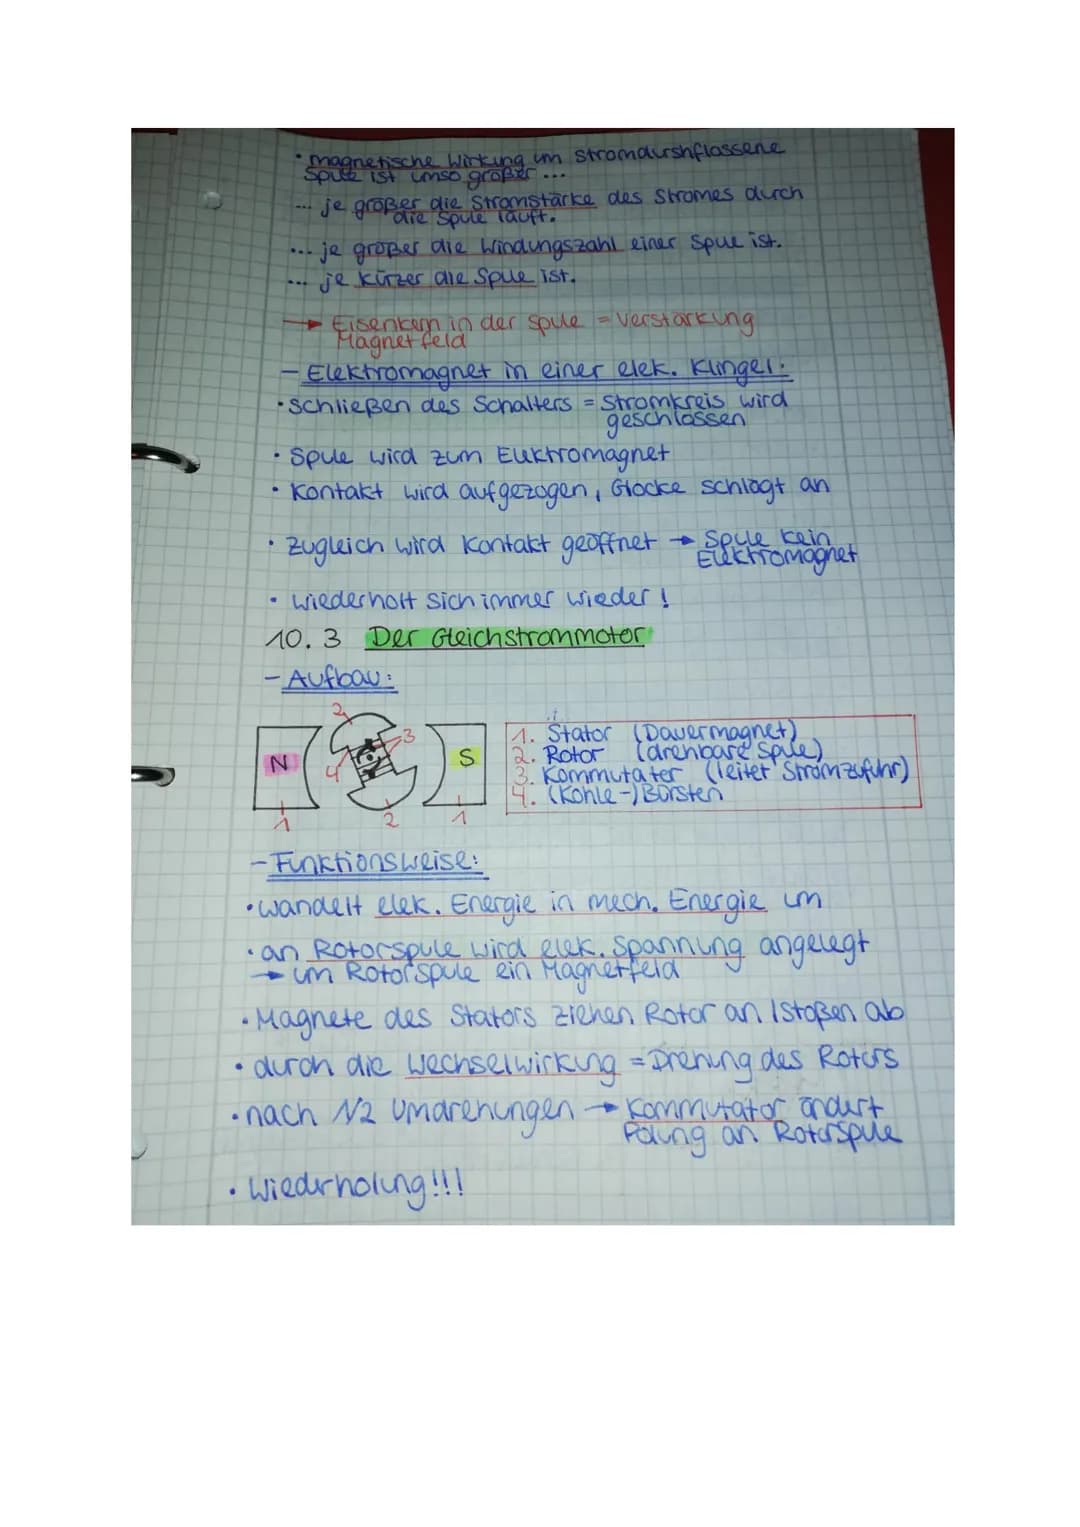 • magnetische Wirkung um stromdurshflossene
Spule ist umso größer ...
... je größer die Stromstärke des Stromes durch
die Spule läuft.
... je größer die Windungszahl einer Spule ist.
... je kürzer die Spule ist.
→ Eisenkern in der Spule = Verstärkung
Magnetfeld
- Elektromagnet in einer elek. Klingel:
• Schließen des Schalters = Stromkreis wird
geschlossen
• Spule wird zum Elektromagnet
• Kontakt wird aufgezogen, Glocke schlägt an
• zugleich wird Kontakt geöffnet → Spule kein
Elektromagnet
• wiederholt sich immer wieder!
10.3 Der Gleichstrommotor
- Aufbau:
2
3
N
4
S
1
2
1
1. Stator (Dauermagnet)
2. Rotor (drehbare Spule)
3. Kommutater (leitet Stromzufuhr)
4. (Kohle-)Bürsten
- Funktionsweise:
• wandelt elek. Energie in mech. Energie um
• an Rotorspule wird elek. Spannung angelegt
→ um Rotorspule ein Magnetfeld
• Magnete des Stators ziehen Rotor an / stoßen ab
• durch die Wechselwirkung = Drehung des Rotors
• nach 1/2 Umdrehungen → Kommutator ändert
Polung an Rotorspule
• Wiederholung!!!